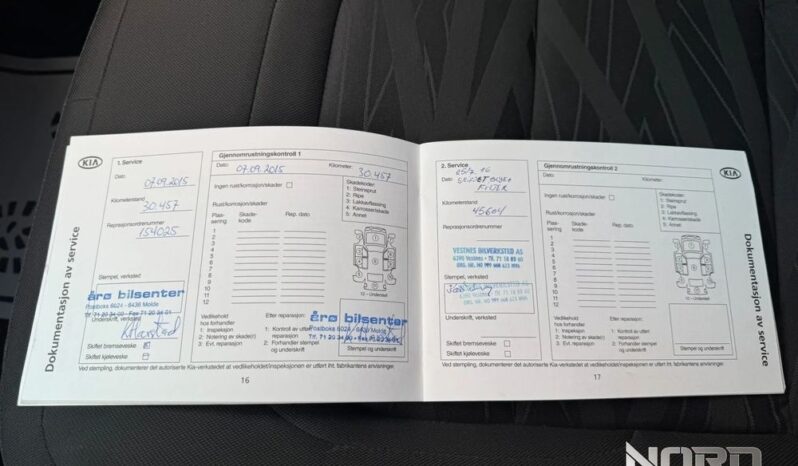 KIA
Dokumentasjon av service
1. Service
Dato
07.09.2015
Kilometerstand
30.457
Reprasjonsordrenummer
154025
Stempel, verksted
årø bilsenter
Postboks 6024 - 6436 Molde
Tlf. 71 20 34 00 - Fax 71 20 34 01
Underskrift, verksted
Skiftet bremsevæske
Skiftet kjølevæske
Gjennomrustningskontroll 1
Dato 07.09.2015 Kilometer: 30.457
Ingen rust/korrosjon/skader
Rust/korrosjon/skader
Plas-
sering
Skade-
kode
Rep. dato
1
2
3
4
5
6
7
8
9
10
11
12
Skadekoder:
1: Steinsprut
2: Ripe
3: Lakkavflassing
4: Karosseriskade
5: Annet
12 - Understell
Vedlikehold
hos forhandler
1: Inspeksjon
2: Notering av skade(r)
3: Evt. reparasjon
Etter reparasjon:
1: Kontroll av utført
reparasjon
2: Forhandler stempel
og underskrift
årø bilsenter
Postboks 6024 - 6436 Molde
Tlf. 71 20 34 00 - Fax 71 20 34 01
Stempel og underskrift
Ved stempling, dokumenterer det autoriserte Kia-verkstedet at vedlikeholdet/inspeksjonen er utført iht. fabrikantens anvisninger.
16
2. Service
Dato
Kilometerstand
45604
Reprasjonsordrenummer
VESTNES BILVERKSTED AS
6390 Vestnes • Tlf. 71 18 80 60
Stempel, verksted
Underskrift, verksted
Skiftet bremsevæske
Skiftet kjølevæske
Gjennomrustningskontroll 2
Dato Kilometer:
Ingen rust/korrosjon/skader
Rust/korrosjon/skader
Plas-
sering
Skade-
kode
Rep. dato
1
2
3
4
5
6
7
8
9
10
11
12
Skadekoder:
1: Steinsprut
2: Ripe
3: Lakkavflassing
4: Karosseriskade
5: Annet
12 - Understell
Vedlikehold
hos forhandler
1: Inspeksjon
2: Notering av skade(r)
3: Evt. reparasjon
Etter reparasjon:
1: Kontroll av utført
reparasjon
2: Forhandler stempel
og underskrift
Stempel og underskrift
Ved stempling, dokumenterer det autoriserte Kia-verkstedet at vedlikeholdet/inspeksjonen er utført iht. fabrikantens anvisninger.
17
KIA
Dokumentasjon av service
NORD